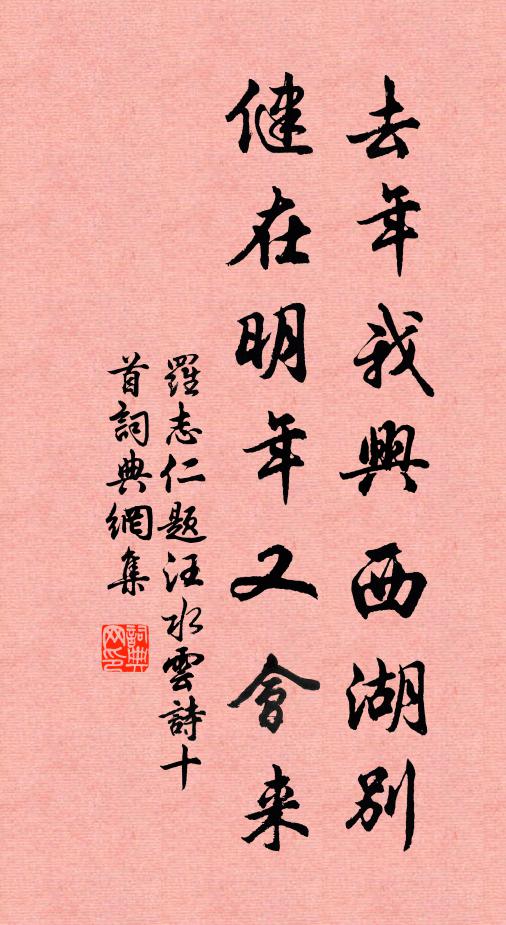 去年我興西湖別
健在明年又會来
羅志仁題汪水雲詩十
首詞典網集
詞典
网印